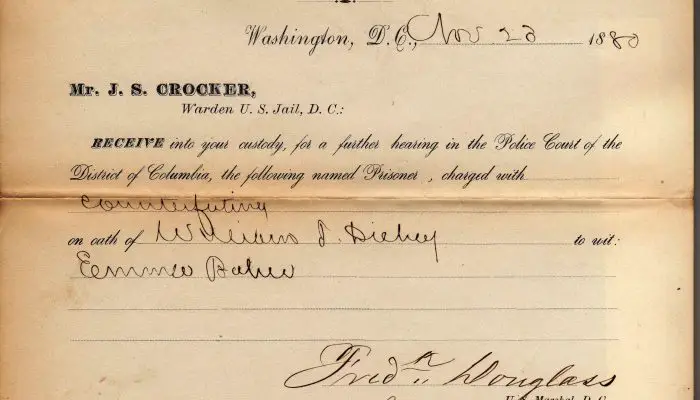 Washington, D.C., Nov 23 1880
Mr. J. S. CROCKER,
Warden U. S. Jail, D. C.:
RECEIVE into your custody, for a further hearing in the Police Court of the
District of Columbia, the following named Prisoner , charged with
Counterfeiting
on oath of William to wit:
Fredk Douglass
U. S. Marshal, D. C.